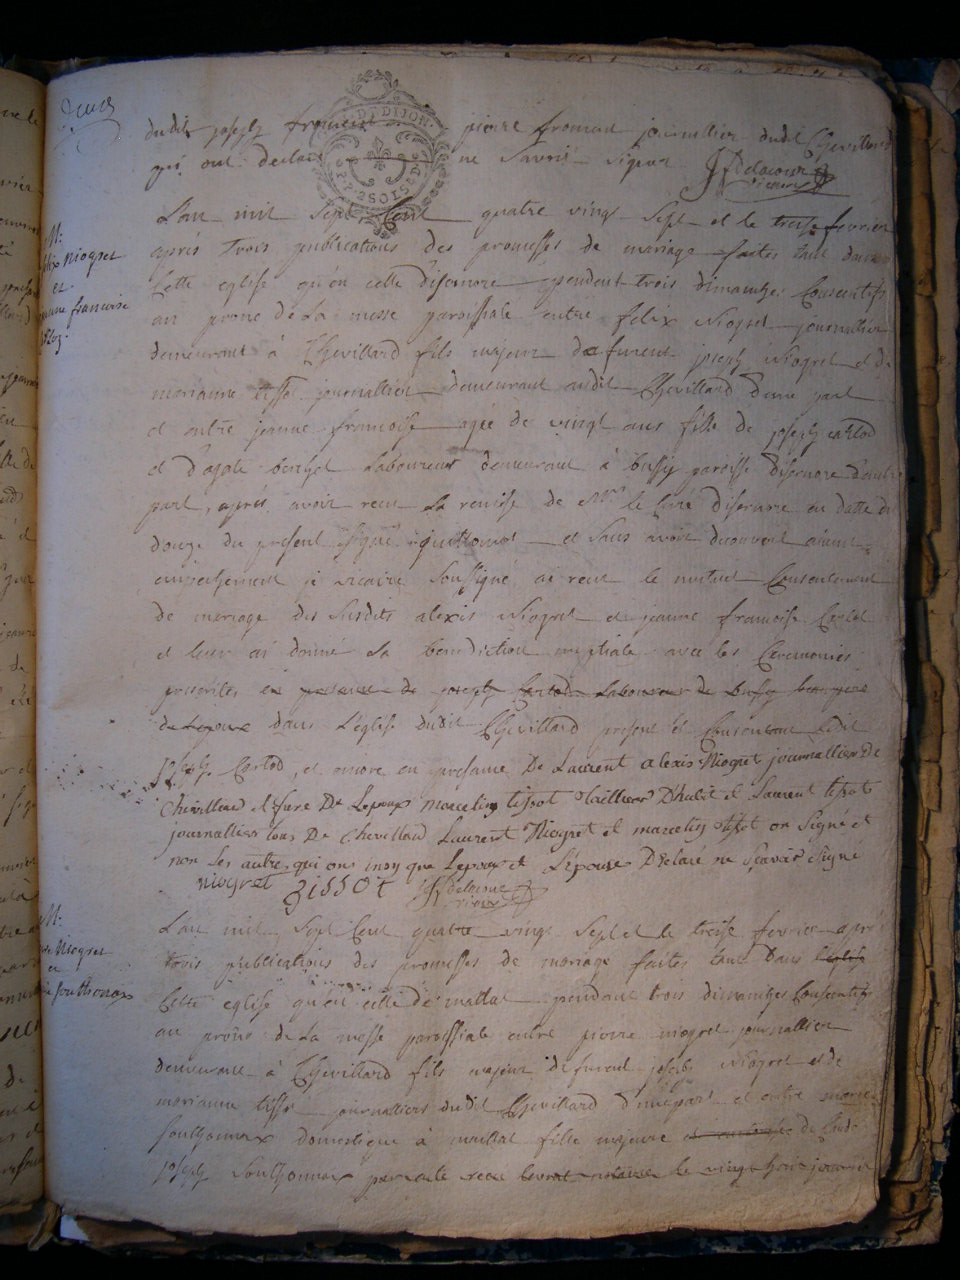 dudit joseph froment pierre froment journallier dudit Chevillard
qui ont declaré ne savoir signer JfDelacour
vicaire
DE DIJON
2 SOLS 8 D
M:
Niogret
et
francoise
L'an mil sept Cent quatre vingt sept et le treise fevrier
après trois publications des promesses de mariage faites tant dans
Cette eglise qu'en celle disernore pendant trois dimanches Consecutifs
au prone de La messe paroissiale entre felix Niogret journallier
demeurant à Chevillard fils majeur de furent joseph Niogret et de
marianne tissot journallier demeurant audit Chevillard d'une part
et entre jeanne francoise agée de vingt ans fille de joseph carlod
et d'agate Laboureur demeurant à bussy paroisse disernore d'autre
part, après avoir recu La remise de Mr. le Curé disernore en datte du
douze du present signé et sans avoir decouvert aucun
empechement je vicaire soussigné ai recu le mutuel Consentement
de mariage des susdits alexis Niogret et jeanne francoise Carlod
et leur ai donné La benediction nuptiale avec les Ceremonies
prescrites en presence de joseph Carlod Laboureur de bussy
de Lepoux dans L'église dudit Chevillard present et Consentant Ledit
joseph Carlod, et encore en presance De Laurent alexis Niogret journallier De
Chevillard et frere De Lepoux marcelin tissot tailleur Dhabit et Laurent tissot
journallier tous De Chevillard Laurent Niogret et marcelin tissot on Signé et
non Les autre qui ons insy que Lepoux et L'épouse Déclaré ne Scavoir Signé
niogret tissot Jf delacour
vicaire
M:
Niogret
et
Southonax
L'an mil sept Cent quatre vingt sept et le treise fevrier après
trois publications des promesses de mariage faites tant dans l'eglise
Cette eglise qu'en celle de maillat pendant trois dimanches Consecutifs
au prône de La messe paroissiale entre pierre niogret journallier
demeurant à Chevillard fils majeur de furent joseph Niogret et de
marianne tissot journalliers dudit Chevillard d'une part et entre marie
Southonnax domestique à maillat fille majeure de
joseph Southonnax par acte recu notaire le vingt trois janvier